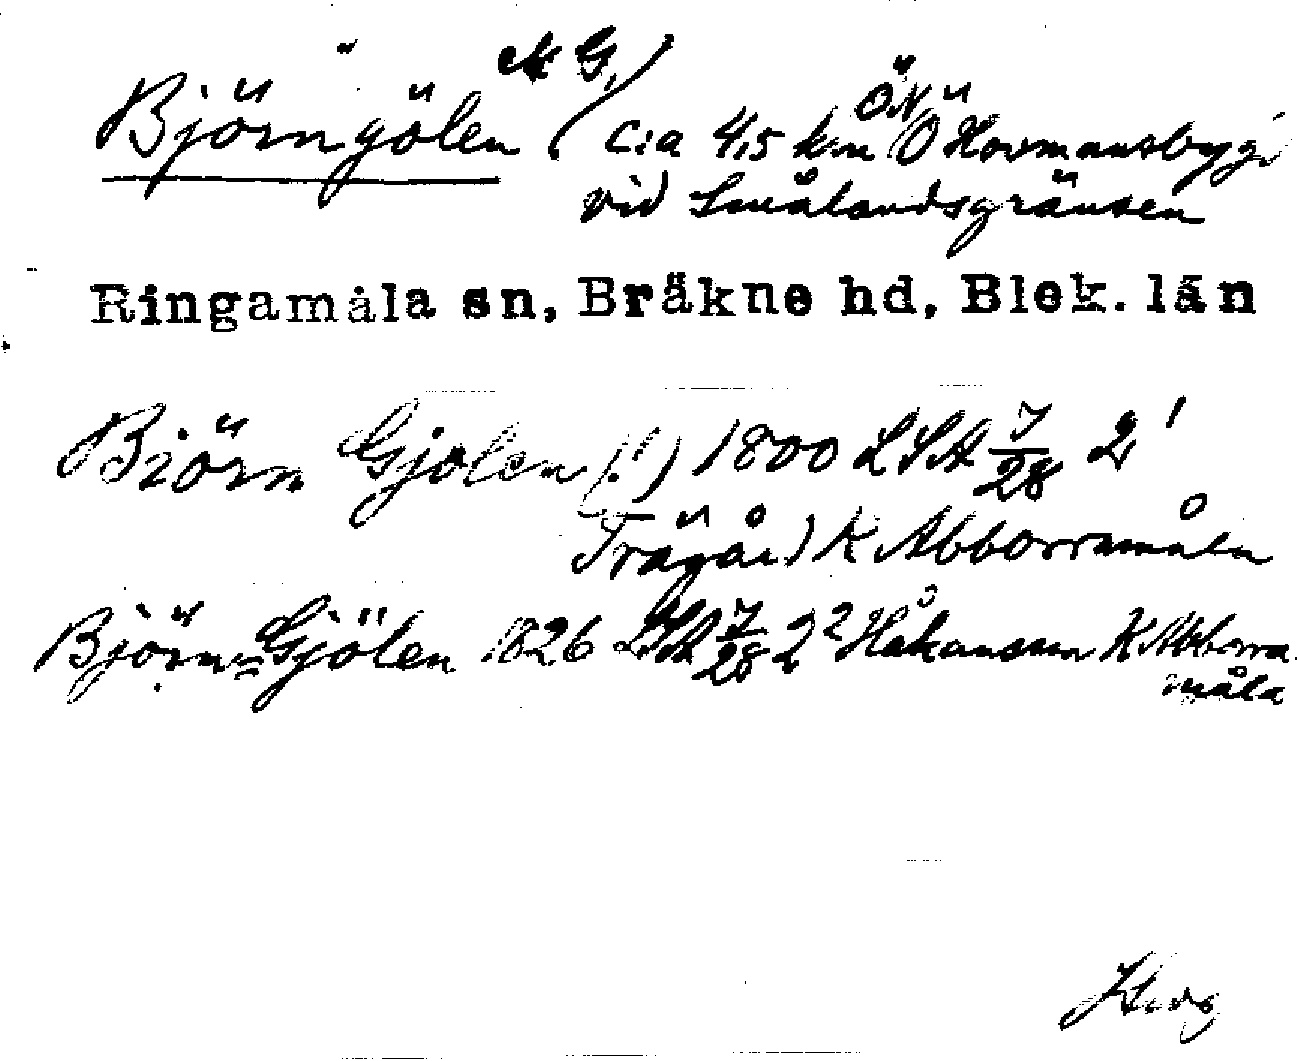 Björngölen (c:a 4,5 km ÖNÖ Hovmansbygd
vid Smålandsgränsen
Ringamåla sn, Bräkne hd, Blek. län
Björn Gjolen (!) 1800 LSA 7/28 2¹
Trägård K Abborramåla
Björn=Gjölen 1826 LSA 7/28 2² Håkansson K Abborra
måla